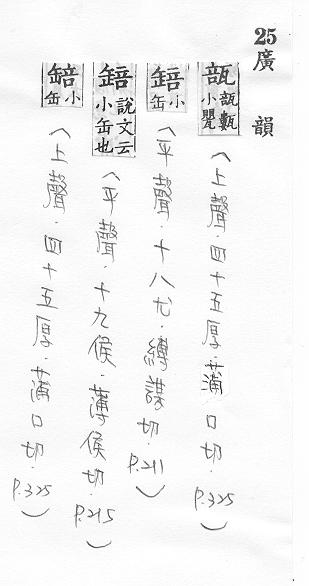 25廣韻
瓿瓿甊小甖(上聲．四十五厚．蒲口切．P.325)
䍌小缶(平聲．十八尤．縛謀切．P.211)
䍌說文云小缶也(平聲．十九侯．薄侯切．P.215)
䍌小缶(上聲．四十五厚．蒲口切．P.325)